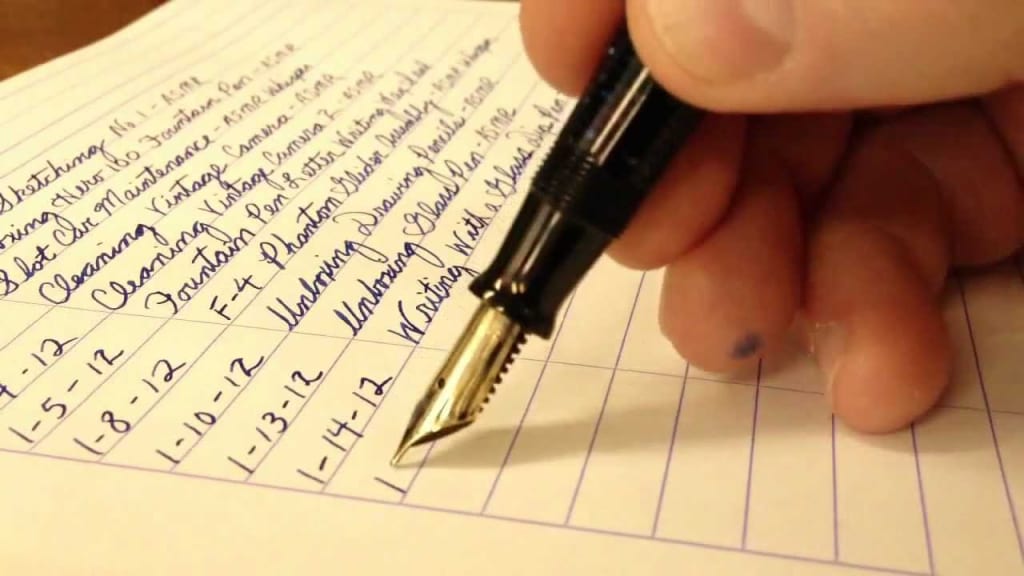 Sketching No. 1 - ASMR
Hero Fountain Pen - ASMR
Slot Car Maintenance - ASMR Whisper
Cleaning Vintage Camera - ASMR
4-12 Cleaning Vintage Camera 2 - ASMR
1-5-12 Fountain Pen Letter Writing
1-8-12 F-4 Phantom Assembly ASMR Whisper
1-10-12 Unboxing Drawing Pencils - ASMR
1-13-12 Unboxing Glass Pen - ASMR
1-14-12 Writing With a Glass Dip Pen
1